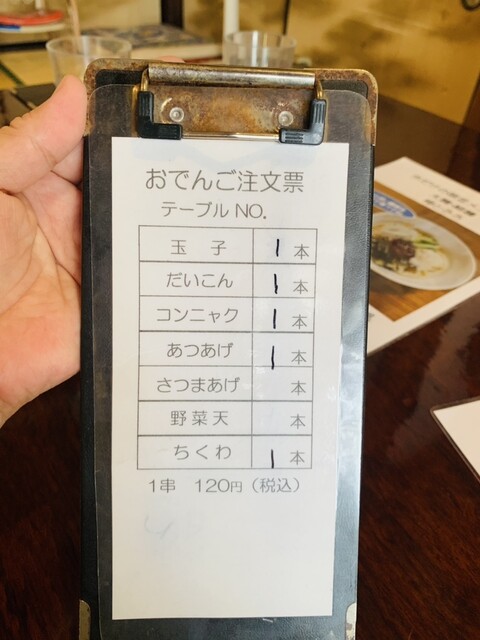 おでんご注文票
テーブル NO.
玉子 1 本
だいこん 1 本
コンニャク 1 本
あつあげ 1 本
さつまあげ 本
野菜天 本
ちくわ 1 本
1串 120円（税込）